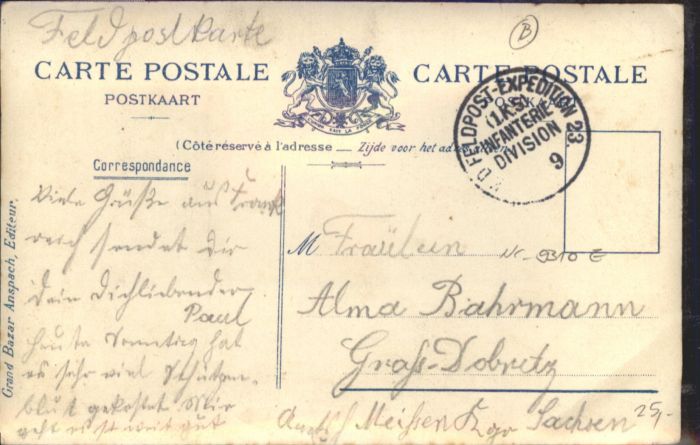 Feldpostkarte
B
CARTE POSTALE
CARTE POSTALE
POSTKAART
(Côté réservé à l'adresse — Zijde voor het
K.D. FELDPOST-EXPEDITION 23.
(1.K.S.)
INFANTERIE
DIVISION
9
Correspondance
Grand Bazar Anspach, Editeur.
Viele Grüße aus Frank
reich sendet dir
dein dichliebender
Paul
heute Sonntag hat
es sehr viel Schützen-
blut gekostet Mir
geht es
gut
M Fräulein
Nr. 9310 E
Alma Bahrmann
Groß-Dobritz
Meissen Kgr Sachsen
25,-